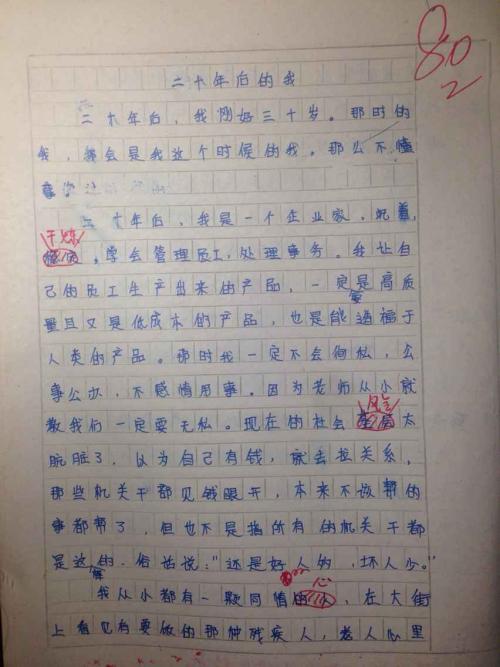 80
2
二十年后的我
二十年后，我刚好三十岁。那时的
我，会是我这个时候的我。那么不懂
事
二十年后，我是一个企业家，沉着，
干炼
。学会管理员工，处理事务。我让自
己的员工生产出来的产品，一定是高质
量且又是低成本的产品，也是能造福于
人类的产品。那时我一定不会徇私，公
事公办，不感情用事。因为老师从小就
教我们一定要无私。现在的社会风气太
肮脏了，以为自己有钱，就去拉关系，
那些机关干部见钱眼开，本来不该帮的
事都帮了，但也不是指所有的机关干部
是这样的，俗话说："还是好人多，坏人少。"
我从小都有一颗同情心，在大街
上看见有要饭的那种残疾人，老人心里